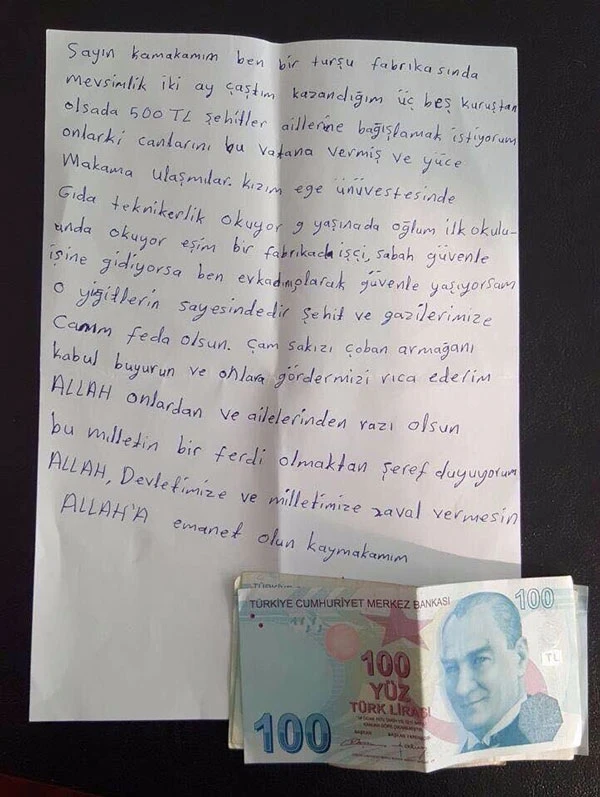 Sayın kamakamım ben bir turşu fabrikasında
mevsimlik iki ay çaştım kazandığım üç beş kuruştan
olsada 500 TL şehitler aillerine bağışlamak istiyorum
onlarki canlarını bu vatana vermiş ve yüce
Makama ulaşmılar. kızım ege ünüvestesinde
Gıda teknikerlik okuyor 9 yaşınada oğlum ilk okulu-
unda okuyor eşim bir fabrikada işçi, sabah güvenle
işine gidiyorsa ben evkadınıolarak güvenle yaşıyorsam
O yiğitlerin sayesindedir şehit ve gazilerimize
Canım feda olsun. Çam sakızı çoban armağanı
kabul buyurun ve onlara gördermizi rica ederim
ALLAH onlardan ve ailelerinden razı olsun
bu milletin bir ferdi olmaktan şeref duyuyorum
ALLAH, Devletimize ve milletimize zaval vermesin
ALLAH'A emanet olun kaymakamım
TÜRKİYE CUMHURİYET MERKEZ BANKASI
100
100
YÜZ
TÜRK LİRASI
TL
100